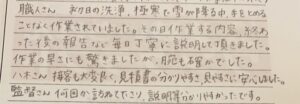 職人さん お夕日の洗浄、極寒で雪が降る中、手をとめる
ことなく作業されていました。その日作業する内容、終わ
った後の報告など毎日丁寧に説明して頂きました。
作業の早さにも驚きましたが、腕も確かでした。
ハネさん 接客も大変良く、見積書の分かりやすさ、見やすさに安心しました。
監督さん 何回か訪ねて下さり、説明等分かりやすかったです。